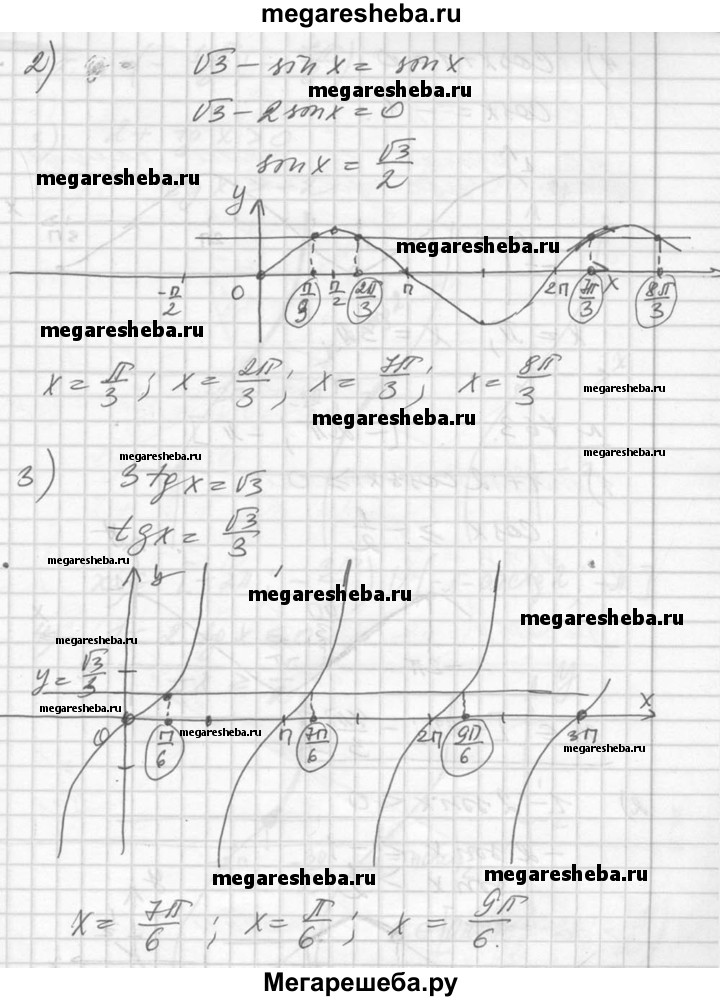 megaresheba.ru
2) √3 - sin x = sin x
megaresheba.ru
√3 - 2 sin x = 0
sin x = √3/2
megaresheba.ru
y
megaresheba.ru
-π/2 0 π/9 π/2 2π/3 π 2π 7π/3 x 8π/3
megaresheba.ru
x = π/3 ; x = 2π/3 ; x = 7π/3 ; x = 8π/3
megaresheba.ru
megaresheba.ru
megaresheba.ru
megaresheba.ru
3) 3 tg x = √3
tg x = √3/3
megaresheba.ru
y
megaresheba.ru
megaresheba.ru
megaresheba.ru
y = √3/3
megaresheba.ru
x
0 π/6 π 7π/6 2π 9π/6 3π
megaresheba.ru
megaresheba.ru
megaresheba.ru
megaresheba.ru
x = 7π/6 ; x = π/6 ; x = 9π/6.
Мегарешеба.ру